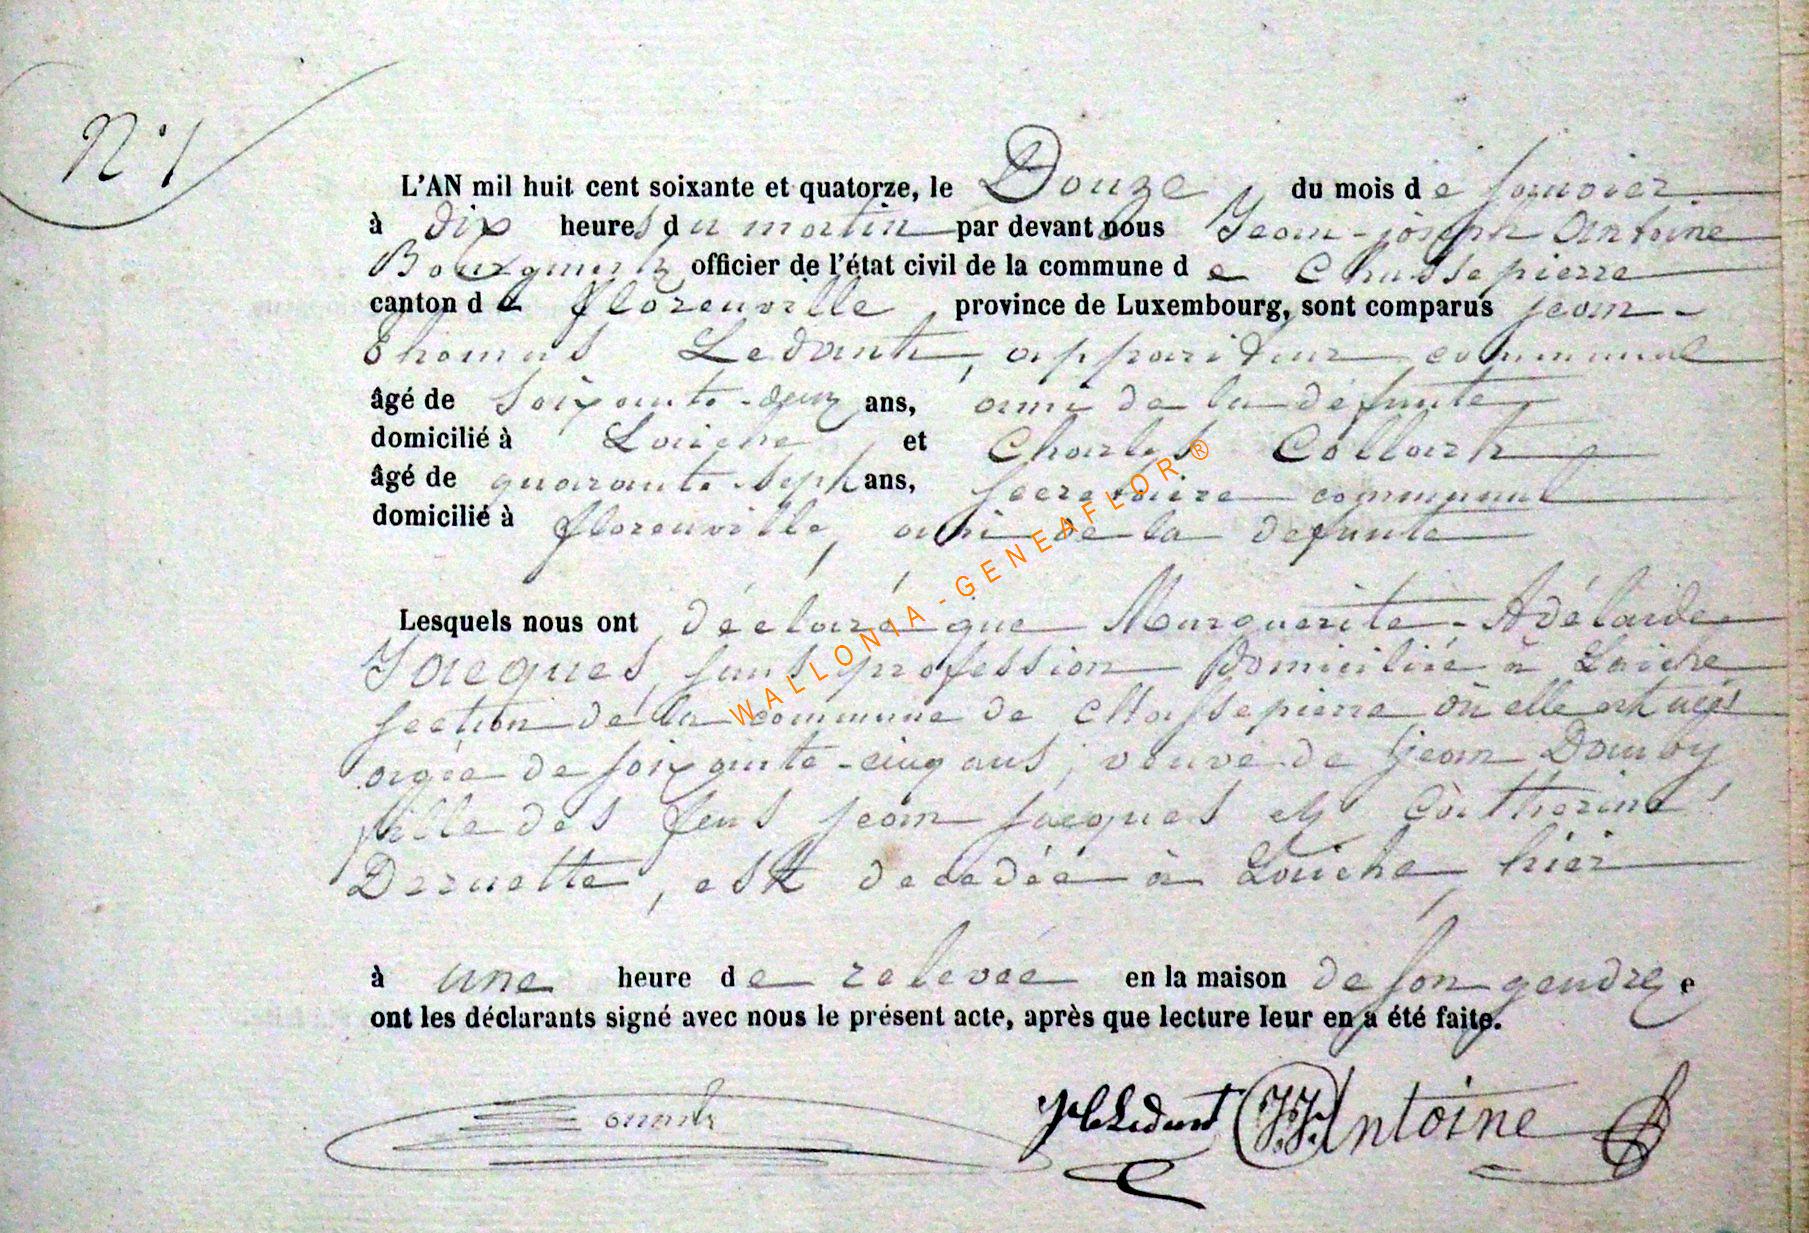 N° 1
L'AN mil huit cent soixante et quatorze, le Douze du mois de Janvier
à dix heures du matin par devant nous Jean-joseph Antoine
Bourgmestre officier de l'état civil de la commune de Chassepierre
canton de florenville, province de Luxembourg, sont comparus jean-
Thomas Ledant, appariteur communal
âgé de Soixante-deux ans, ami de la défunte
domicilié à Laiche et Charles Collart
âgé de quarante-sept ans, secretaire communal
domicilié à florenville, ami de la defunte
Lesquels nous ont déclaré que Marguerite-Adélaide
Jacques, sans profession Domiciliée à Laiche
section de la commune de Chassepierre où elle est née
agée de soixante-cinq ans, veuve de jean
fille des feus jean jacques et Catherine
est decedée à Laiche, hier
à une heure de relevée en la maison de son gendre e
ont les déclarants signé avec nous le présent acte, après que lecture leur en a été faite.
Ledant J.J. Antoine
WALLONIA-GENEAFLOR®